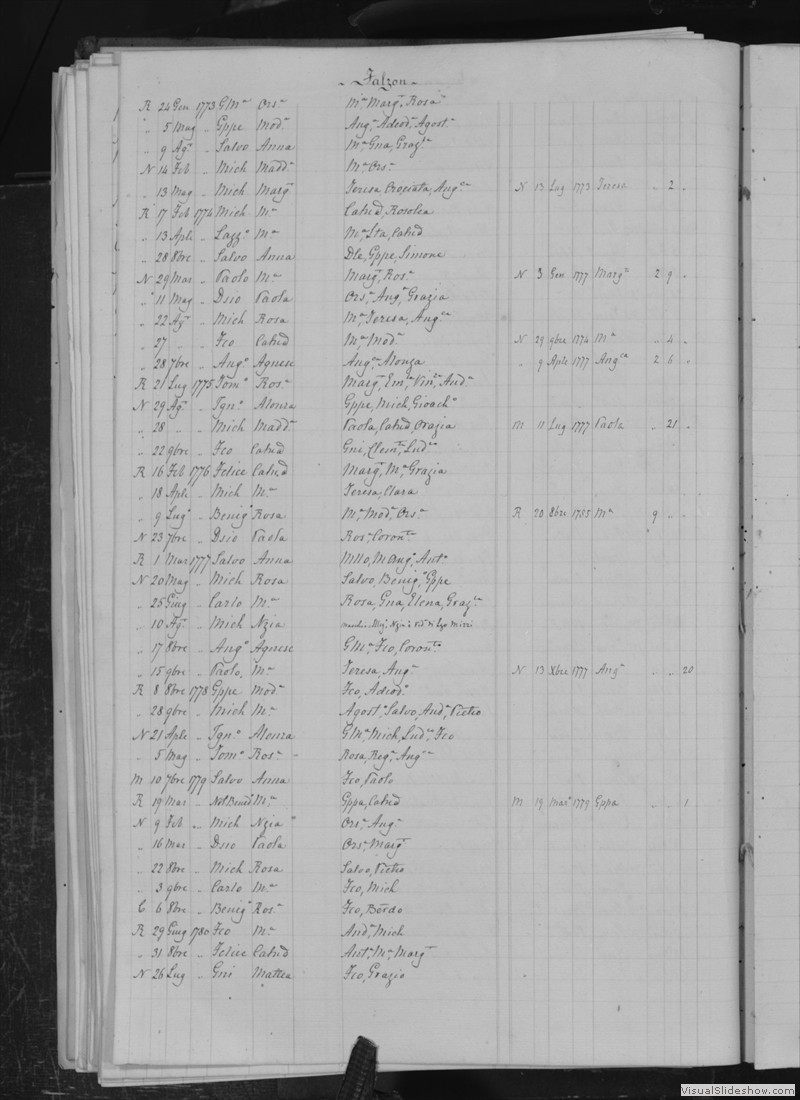 Falzon
R 24 Gen 1773 G.Mª Orsª Mª Margª Rosa
" 5 Mag " Gppe Modª Angª Adeodª Agostª
" 9 Agº " Salvo Anna Mª Gna, Grazª
N 14 Feb " Mich Maddª Mª Orsª
" 13 Mag " Mich Margª Teresa Crociata, Angª N 13 Lug 1773 Teresa " 2 "
R 17 Feb 1774 Mich Mª Catnd, Rosolea
" 13 Aple " Lazzº Mª Mª Sta, Catnd
" 28 8bre " Salvo Anna Dla, Gppe, Simone
N 29 Mar " Paolo Mª Margª, Rosª N 3 Gen 1777 Margª 2 9 "
" 11 Mag " Dsio Paola Orsª, Angª Grazia
" 22 Agº " Mich Rosa Mª Teresa, Angª
" 27 " " Fco Catnd Mª Modª N 29 9bre 1774 Mª " 4 "
" 28 7bre " Angº Agnese Angª Alonza " 9 Aple 1777 Angª 2 6 "
R 21 Lug 1775 Tomº Rosª Margª, Emª, Vinª, Andª
N 29 Agº " Ignº Alonza Gppe, Mich, Gioachº
" 28 " " Mich Maddª Paola, Catnd, Grazia M 11 Lug 1777 Paola " 21 "
" 22 9bre " Fco Catnd Gni, Clemª, Ludª
R 16 Feb 1776 Felice Catnd Margª, Mª, Grazia
" 18 Aple " Mich Mª Teresa, Clara
" 9 Lugº " Benigº Rosa Mª, Modª, Orsª R 20 8bre 1785 Mª 9 " "
N 23 7bre " Dsio Paola Rosª, Coronª
R 1 Mar 1777 Salvo Anna Mllo, M Angª, Antª
N 20 Mag " Mich Rosa Salvo, Benigº, Gppe
" 25 Giug " Carlo Mª Rosa, Gna, Elena, Grazª
" 10 Agº " Mich Nzia Nzia Mizzi
" 17 8bre " Angº Agnese G.Mª, Fco, Coronª
" 15 9bre " Paolo, Mª Teresa, Angª N 13 Xbre 1777 Angª " " 20
R 8 8bre 1778 Gppe Modª Fco, Adeodº
" 28 9bre " Mich Mª Agostº, Salvo, Andª, Pietro
N 21 Aple " Ignº Alonza G.Mª, Mich, Ludª, Fco
" 5 Mag " Tomº Rosª Rosa, Regª, Angª
M 10 7bre 1779 Salvo Anna Fco, Paolo
R 19 Mar " Not. Bened Mª Gppa, Catnd M 19 Marº 1779 Gppa " " 1
N 9 Feb " Mich Nzia Orsª, Angª
" 16 Mar " Dsio Paola Orsª, Margª
" 22 8bre " Mich Rosa Salvo, Pietro
" 3 9bre " Carlo Mª Fco, Mich
C 6 8bre " Benigº Rosª Fco, Bordo
R 29 Giug 1780 Fco Mª Andª, Mich
" 31 8bre " Felice Catnd Antª, Mª, Margª
N 26 Lug " Gni Mattea Fco, Grazio
VisualSlideshow.com